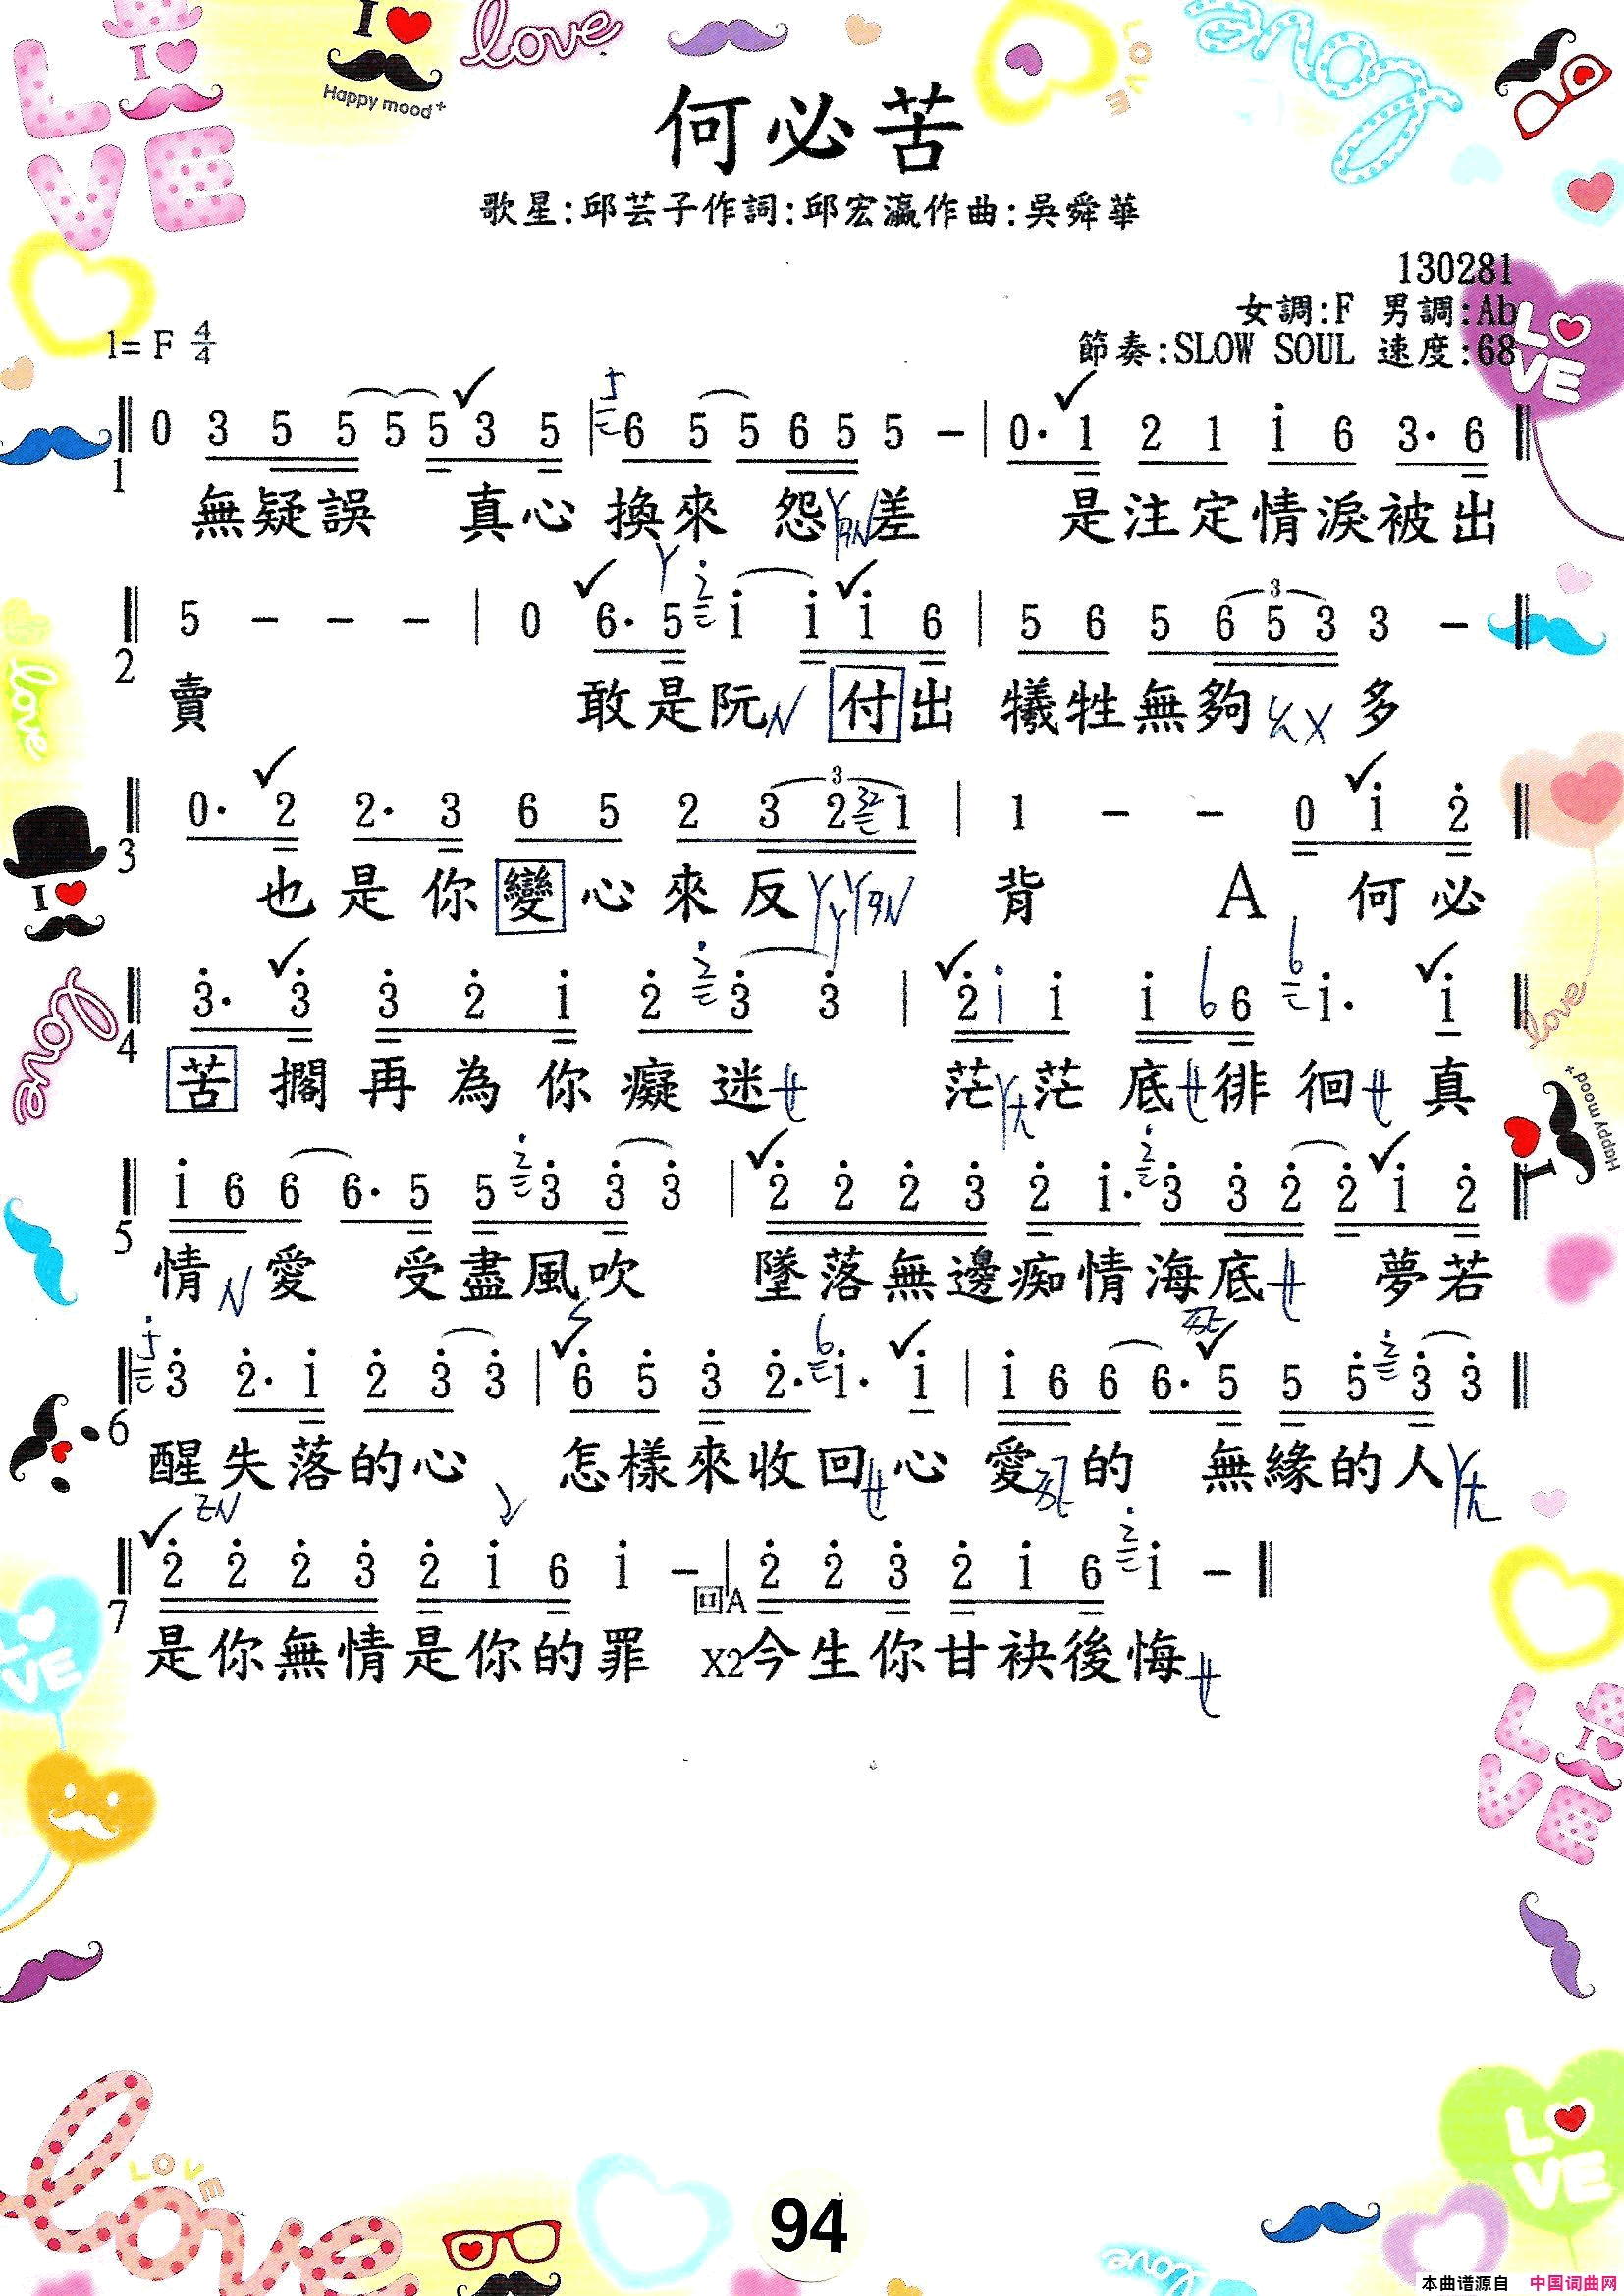 I ♥
Happy mood+
love
何必苦
歌星:邱芸子作詞:邱宏瀛作曲:吳舜華
130281
女調:F 男調:Ab
1= F 4/4
節奏:SLOW SOUL 速度:68
0 3 5 5 5 5 3 5 | 6 5 5 6 5 5 - | 0· 1 2 1 i 6 3· 6
1
無疑誤 真心 換來 怨 差 是注定情淚被出
5 - - - | 0 6· 5 i i i 6 | 5 6 5 6 5 3 3 -
2
賣 敢是阮 付出 犧牲無夠 多
0· 2 2· 3 6 5 2 3 2 1 | 1 - - 0 i 2
3
也是你變心來反 背 A 何必
3· 3 3 2 i 2 3 3 | 2 i i i 6 6 i· i
4
苦擱再為你癡迷 茫茫底徘徊 真
i 6 6 6· 5 5 3 3 3 | 2 2 2 3 2 i· 3 3 2 2 i 2
5
情 愛 受盡風吹 墜落無邊痴情海底 夢若
3 2· i 2 3 3 | 6 5 3 2· i· i | i 6 6 6· 5 5 5 3 3
6
醒失落的心 怎樣來收回 心 愛 的 無緣的人
2 2 2 3 2 i 6 i - | 2 2 3 2 i 6 i -
7
回A
是你無情是你的罪 X2今生你甘袂後悔
94
本曲谱源自 中国词曲网